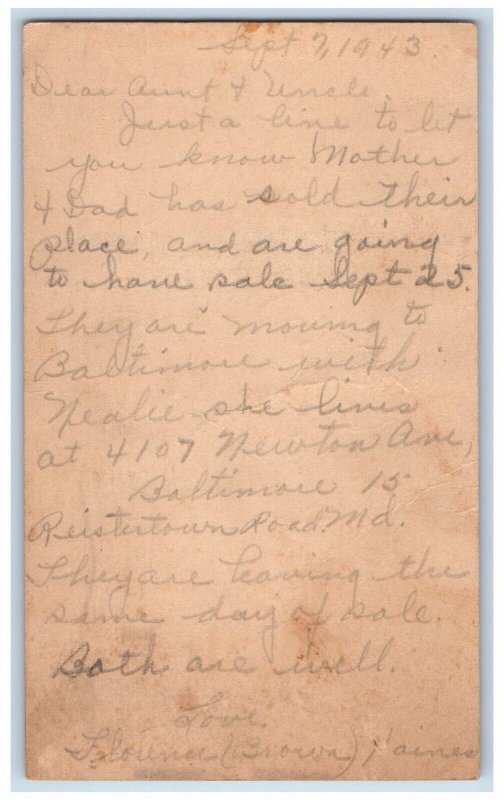 Sept 7, 1943.
Dear Aunt & Uncle,
Just a line to let
you know Mother
& Dad has sold their
place, and are going
to have sale Sept 25.
They are moving to
Baltimore with
Nealie she lives
at 4107 Newton Ave,
Baltimore 15
Reistertown Road. Md.
They are leaving the
same day of sale.
Both are well.
Love.
Florence (Brown)